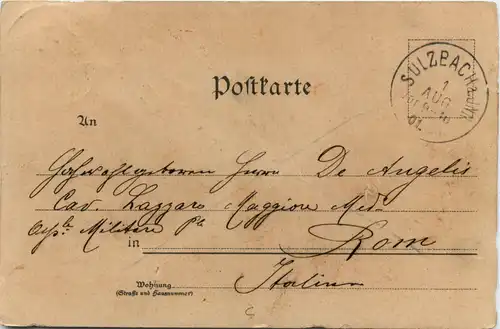 Postkarte
SULZBACH
1
AUG
01.
An
Hochwohlgeboren Herrn De Angelis
Cav. Lazzaro Maggiore Med.
Militare
in Rom
Wohnung Italien
(Straße und Hausnummer)